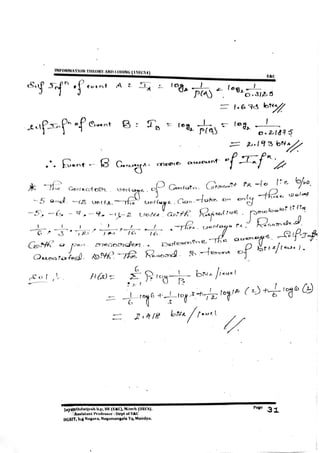 INFORMATION THEORY AND CODING [15EC54] E&C
Self Infⁿ of event A : I_A = log₂ 1/P(A) = log₂ 1/0.3125
= 1.678 bits//
Self Infⁿ of Event B : I_B = log₂ 1/P(B) = log₂ 1/0.21875
= 2.193 bits//
∴ Event - B Conveys more amount of Infⁿ.
* The Collector voltage of Certain Circuits is to lie b/w
-5 and -12 volts. The voltage Can take on only these values
-5, -6, -7, -9, -11, -12 volts with Respective probabilities
1/6, 1/3, 1/12, 1/12, 1/6, 1/6. This voltage is Recorded
with a pen recorder. Determine the average Self Infⁿ
associated with the Record in terms of bits/level.
Solⁿ : H(s) = Σ Pᵢ log 1/Pᵢ bits/level
= 1/6 log 6 + 1/3 log 3 + 1/12 log 12 (2) + 1/6 log 6 (2)
= 2.418 bits/level //
Page 31
Assistant Professor - Dept of E&C